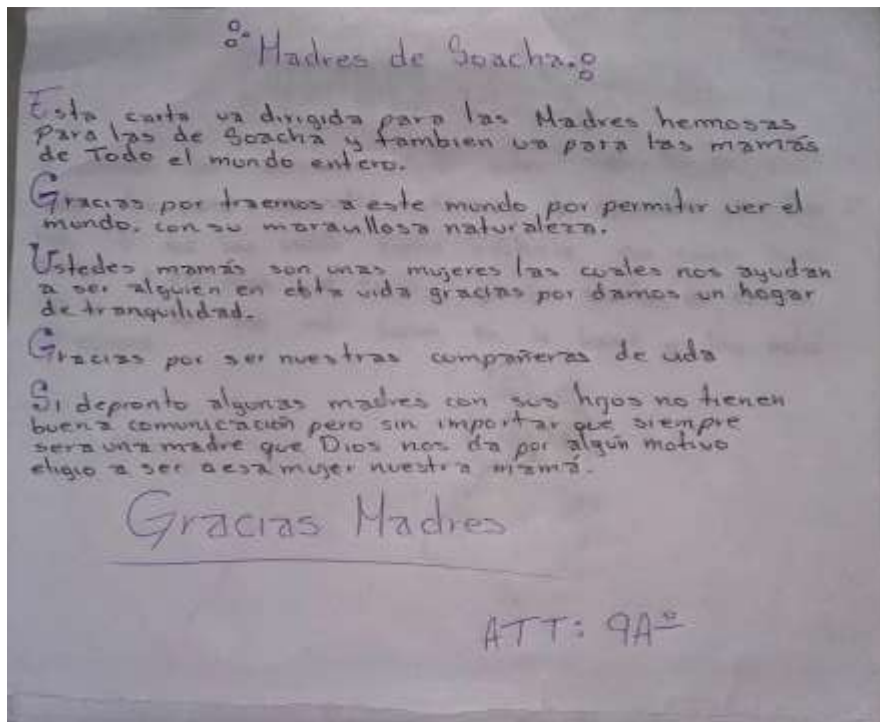 Madres de Soacha.
Esta carta va dirigida para las Madres hermosas
Para las de Soacha y tambien va para las mamás
de Todo el mundo entero.
Gracias por traernos a este mundo por permitir ver el
mundo. con su maravillosa naturaleza.
Ustedes mamás son unas mujeres las cuales nos ayudan
a ser alguien en esta vida gracias por darnos un hogar
de tranquilidad.
Gracias por ser nuestras compañeras de vida
Si depronto algunas madres con sus hijos no tienen
buena comunicación pero sin importar que siempre
sera una madre que Dios nos da por algún motivo
eligio a ser a esa mujer nuestra mamá.
Gracias Madres
ATT: 9Aº